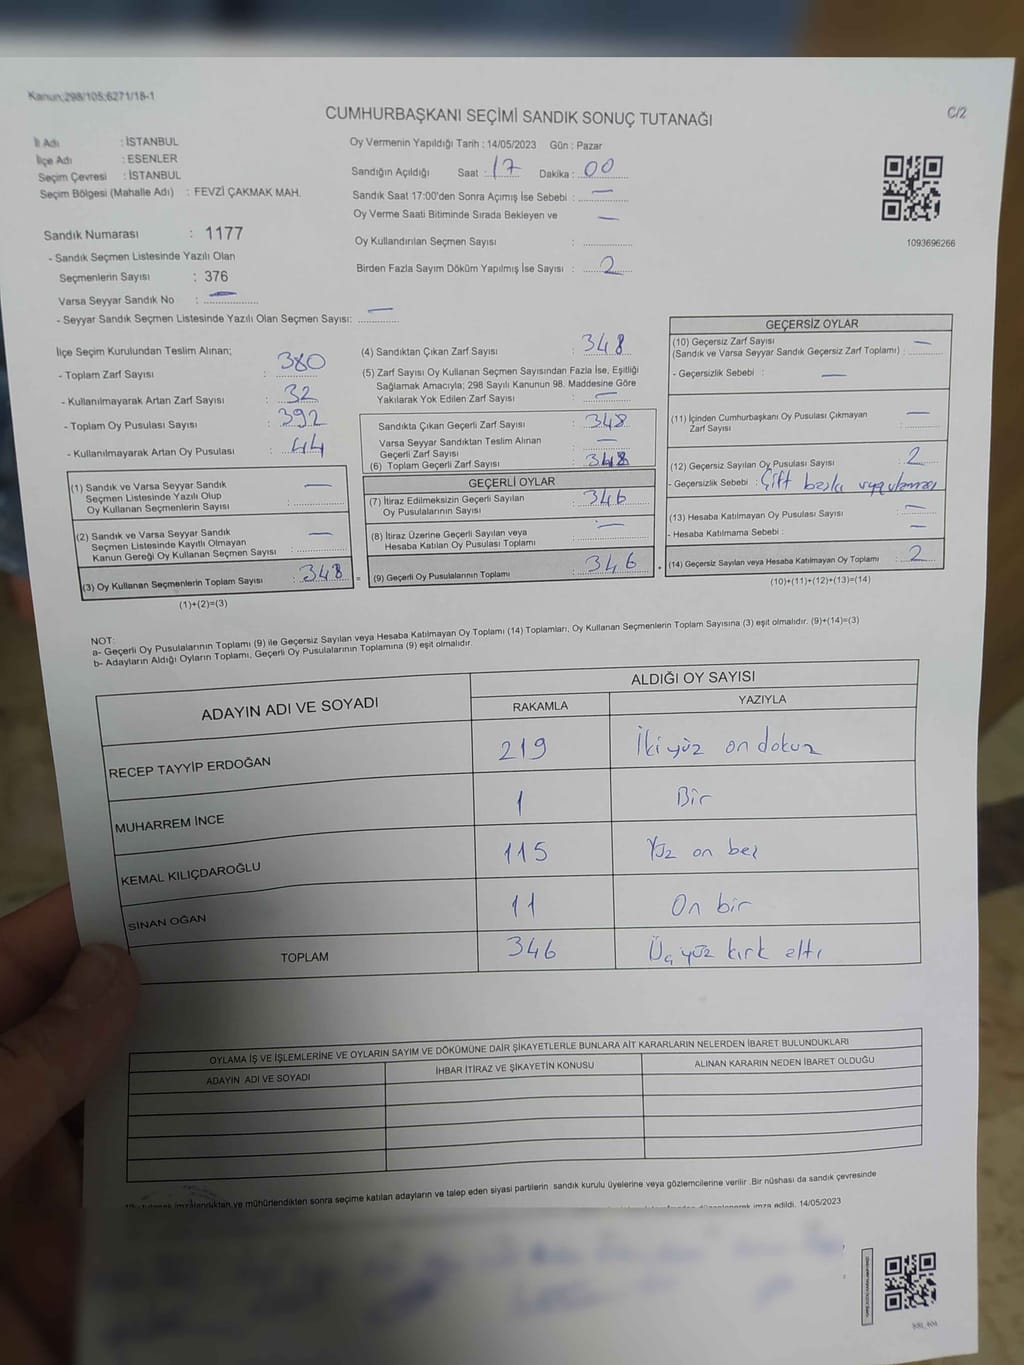 Kanun;298/105;6271/18-1
C/2
CUMHURBAŞKANI SEÇİMİ SANDIK SONUÇ TUTANAĞI
İl Adı : İSTANBUL
İlçe Adı : ESENLER
Seçim Çevresi : İSTANBUL
Seçim Bölgesi (Mahalle Adı) : FEVZİ ÇAKMAK MAH.
Sandık Numarası : 1177
- Sandık Seçmen Listesinde Yazılı Olan
Seçmenlerin Sayısı : 376
Varsa Seyyar Sandık No : —
- Seyyar Sandık Seçmen Listesinde Yazılı Olan Seçmen Sayısı: —
Oy Vermenin Yapıldığı Tarih : 14/05/2023 Gün : Pazar
Sandığın Açıldığı Saat : 17 Dakika : 00
Sandık Saat 17:00'den Sonra Açımış İse Sebebi : —
Oy Verme Saati Bitiminde Sırada Bekleyen ve —
Oy Kullandırılan Seçmen Sayısı :
Birden Fazla Sayım Döküm Yapılmış İse Sayısı : 2
1093696266
İlçe Seçim Kurulundan Teslim Alınan;
- Toplam Zarf Sayısı : 380
- Kullanılmayarak Artan Zarf Sayısı : 32
- Toplam Oy Pusulası Sayısı : 392
- Kullanılmayarak Artan Oy Pusulası : 44
(1) Sandık ve Varsa Seyyar Sandık —
Seçmen Listesinde Yazılı Olup
Oy Kullanan Seçmenlerin Sayısı :
(2) Sandık ve Varsa Seyyar Sandık —
Seçmen Listesinde Kayıtlı Olmayan
Kanun Gereği Oy Kullanan Seçmen Sayısı :
(3) Oy Kullanan Seçmenlerin Toplam Sayısı : 348 =
(1)+(2)=(3)
(4) Sandıktan Çıkan Zarf Sayısı : 348
(5) Zarf Sayısı Oy Kullanan Seçmen Sayısından Fazla İse, Eşitliği
Sağlamak Amacıyla; 298 Sayılı Kanunun 98. Maddesine Göre
Yakılarak Yok Edilen Zarf Sayısı : —
Sandıkta Çıkan Geçerli Zarf Sayısı : 348
Varsa Seyyar Sandıktan Teslim Alınan
Geçerli Zarf Sayısı : —
(6) Toplam Geçerli Zarf Sayısı : 348
GEÇERLİ OYLAR
(7) İtiraz Edilmeksizin Geçerli Sayılan
Oy Pusulalarının Sayısı : 346
(8) İtiraz Üzerine Geçerli Sayılan veya
Hesaba Katılan Oy Pusulası Toplamı : —
(9) Geçerli Oy Pusulalarının Toplamı : 346
GEÇERSİZ OYLAR
(10) Geçersiz Zarf Sayısı —
(Sandık ve Varsa Seyyar Sandık Geçersiz Zarf Toplamı) :
- Geçersizlik Sebebi : —
(11) İçinden Cumhurbaşkanı Oy Pusulası Çıkmayan —
Zarf Sayısı :
(12) Geçersiz Sayılan Oy Pusulası Sayısı : 2
- Geçersizlik Sebebi : Çift baskı uygulaması
(13) Hesaba Katılmayan Oy Pusulası Sayısı : —
- Hesaba Katılmama Sebebi : —
(14) Geçersiz Sayılan veya Hesaba Katılmayan Oy Toplamı : 2
(10)+(11)+(12)+(13)=(14)
NOT:
a- Geçerli Oy Pusulalarının Toplamı (9) ile Geçersiz Sayılan veya Hesaba Katılmayan Oy Toplamı (14) Toplamları, Oy Kullanan Seçmenlerin Toplam Sayısına (3) eşit olmalıdır. (9)+(14)=(3)
b- Adayların Aldığı Oyların Toplamı, Geçerli Oy Pusulalarının Toplamına (9) eşit olmalıdır.
ADAYIN ADI VE SOYADI
ALDIĞI OY SAYISI
RAKAMLA YAZIYLA
RECEP TAYYİP ERDOĞAN 219 İkiyüz on dokuz
MUHARREM İNCE 1 Bir
KEMAL KILIÇDAROĞLU 115 Yüz on beş
SİNAN OĞAN 11 On bir
TOPLAM 346 Üçyüz kırk altı
OYLAMA İŞ VE İŞLEMLERİNE VE OYLARIN SAYIM VE DÖKÜMÜNE DAİR ŞİKAYETLERLE BUNLARA AİT KARARLARIN NELERDEN İBARET BULUNDUKLARI
ADAYIN ADI VE SOYADI İHBAR İTİRAZ VE ŞİKAYETİN KONUSU ALINAN KARARIN NEDEN İBARET OLDUĞU
imzalandıktan ve mühürlendikten sonra seçime katılan adayların ve talep eden siyasi partilerin sandık kurulu üyelerine veya gözlemcilerine verilir. Bir nüshası da sandık çevresinde
düzenlenerek imza edildi. 14/05/2023